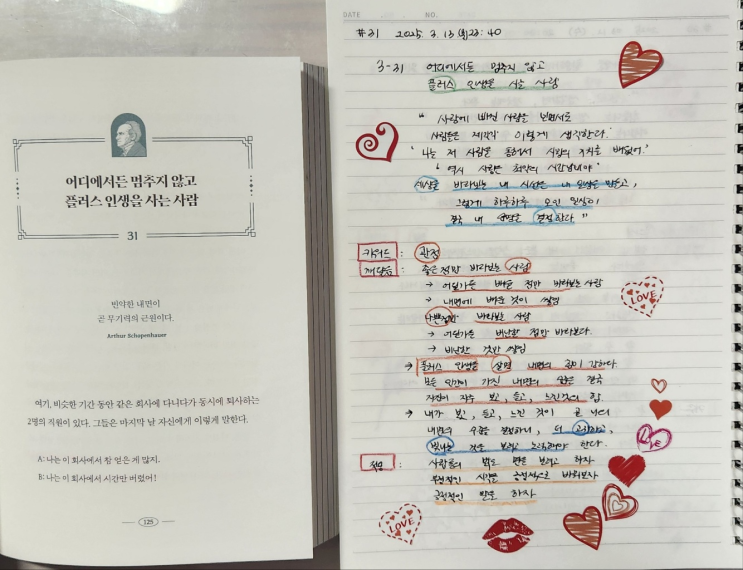 어디에서든 멈추지 않고
플러스 인생을 사는 사람
31
빈약한 내면이
곧 무기력의 근원이다.
Arthur Schopenhauer
여기, 비슷한 기간 동안 같은 회사에 다니다가 동시에 퇴사하는
2명의 직원이 있다. 그들은 마지막 날 자신에게 이렇게 말한다.
A: 나는 이 회사에서 참 얻은 게 많지.
B: 나는 이 회사에서 시간만 버렸어!
125
DATE NO.
#31 2025. 3. 13 :40
3-31 어디에서든 멈추지 않고
플러스 인생을 사는 사람
" 사랑에 빠진 사람을 보면서도
사람들은 제각각 이렇게 생각한다.
' 나는 저 사람을 통해서 사랑의 가치를 배웠어.'
' 역시 사랑은 최악의 시간낭비야 '
세상을 바라보는 내 시선은 내 일상을 만들고,
그렇게 하루하루 모인 일상이
결국 내 을 결정한다. "
키워드 : 관점
깨달음 : 좋은 점만 바라보는 사람
→ 어딜가든 배울 점만 바라보는 사람
→ 내면에 배운 것이 쌓임
나쁜점만 바라보는 사람
→ 어딜가든 비난할 점만 바라본다.
→ 비난한 것만 쌓임
→ 플러스 인생을 살면 내면의 힘이 강하다.
모든 인간이 가진 내면의 힘은 결국
자신이 자주 보고, 듣고, 느낀것의 합.
→ 내가 보고, 듣고, 느낀 것이 곧 나의
내면의 을 결정하니, 더
빛나는 것을 보려고 노력해야 한다.
적용 : 사람들의 밝은 면을 보려고 하자
부정적인 시각을 긍정적으로 바꿔보자
긍정적인 말을 하자
LOVE
LOVE
LOVE